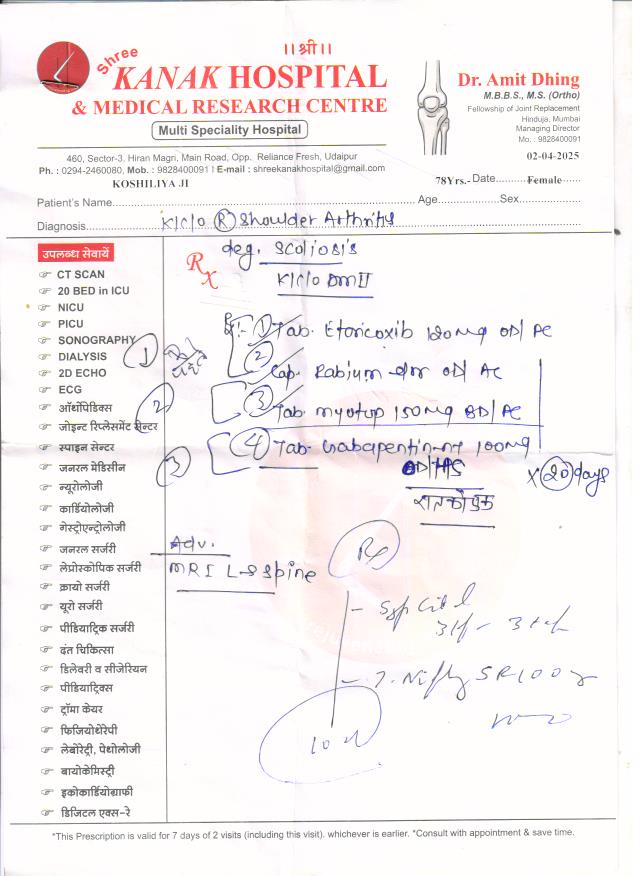 ||श्री||
Shree
KANAK HOSPITAL
& MEDICAL RESEARCH CENTRE
Multi Speciality Hospital
460, Sector-3. Hiran Magri, Main Road, Opp. Reliance Fresh, Udaipur
Ph. : 0294-2460080, Mob. : 9828400091 | E-mail : shreekanakhospital@gmail.com
Dr. Amit Dhing
M.B.B.S., M.S. (Ortho)
Fellowship of Joint Replacement
Hinduja, Mumbai
Managing Director
Mo. : 9828400091
02-04-2025
KOSHILIYA JI 78Yrs.- Date Female
Patient's Name Age Sex
Diagnosis K/c/o (R) Shoulder Arthritis
deg. Scoliosis
K/c/o DM II
उपलब्ध सेवायें
CT SCAN
20 BED in ICU
NICU
PICU
SONOGRAPHY
DIALYSIS
2D ECHO
ECG
ऑर्थोपेडिक्स
जोइन्ट रिप्लेसमेंट सेन्टर
स्पाइन सेन्टर
जनरल मेडिसीन
न्यूरोलॉजी
कार्डियोलॉजी
गेस्ट्रोएन्ट्रोलॉजी
जनरल सर्जरी
लेप्रोस्कोपिक सर्जरी
क्रायो सर्जरी
यूरो सर्जरी
पीडियाट्रिक सर्जरी
दंत चिकित्सा
डिलेवरी व सीजेरियन
पीडियाट्रिक्स
ट्रॉमा केयर
फिजियोथेरेपी
लेबोरेट्री, पेथोलोजी
बायोकेमिस्ट्री
इकोकार्डियोग्राफी
डिजिटल एक्स-रे
Rx
1 Tab. Etoricoxib 120mg OD/PC
2 Cap. Rabium dsr OD/AC
3 Tab myotop 150mg BD/PC
4 Tab. Gabapentin-NT 100mg
OD/HS
x 20 days
रात को एक
1
2
3
Adv.
MRI L-S Spine
Rx
- Syp Cital
3tf - 3tf
- T. Nifty SR 100
10
*This Prescription is valid for 7 days of 2 visits (including this visit). whichever is earlier. *Consult with appointment & save time.